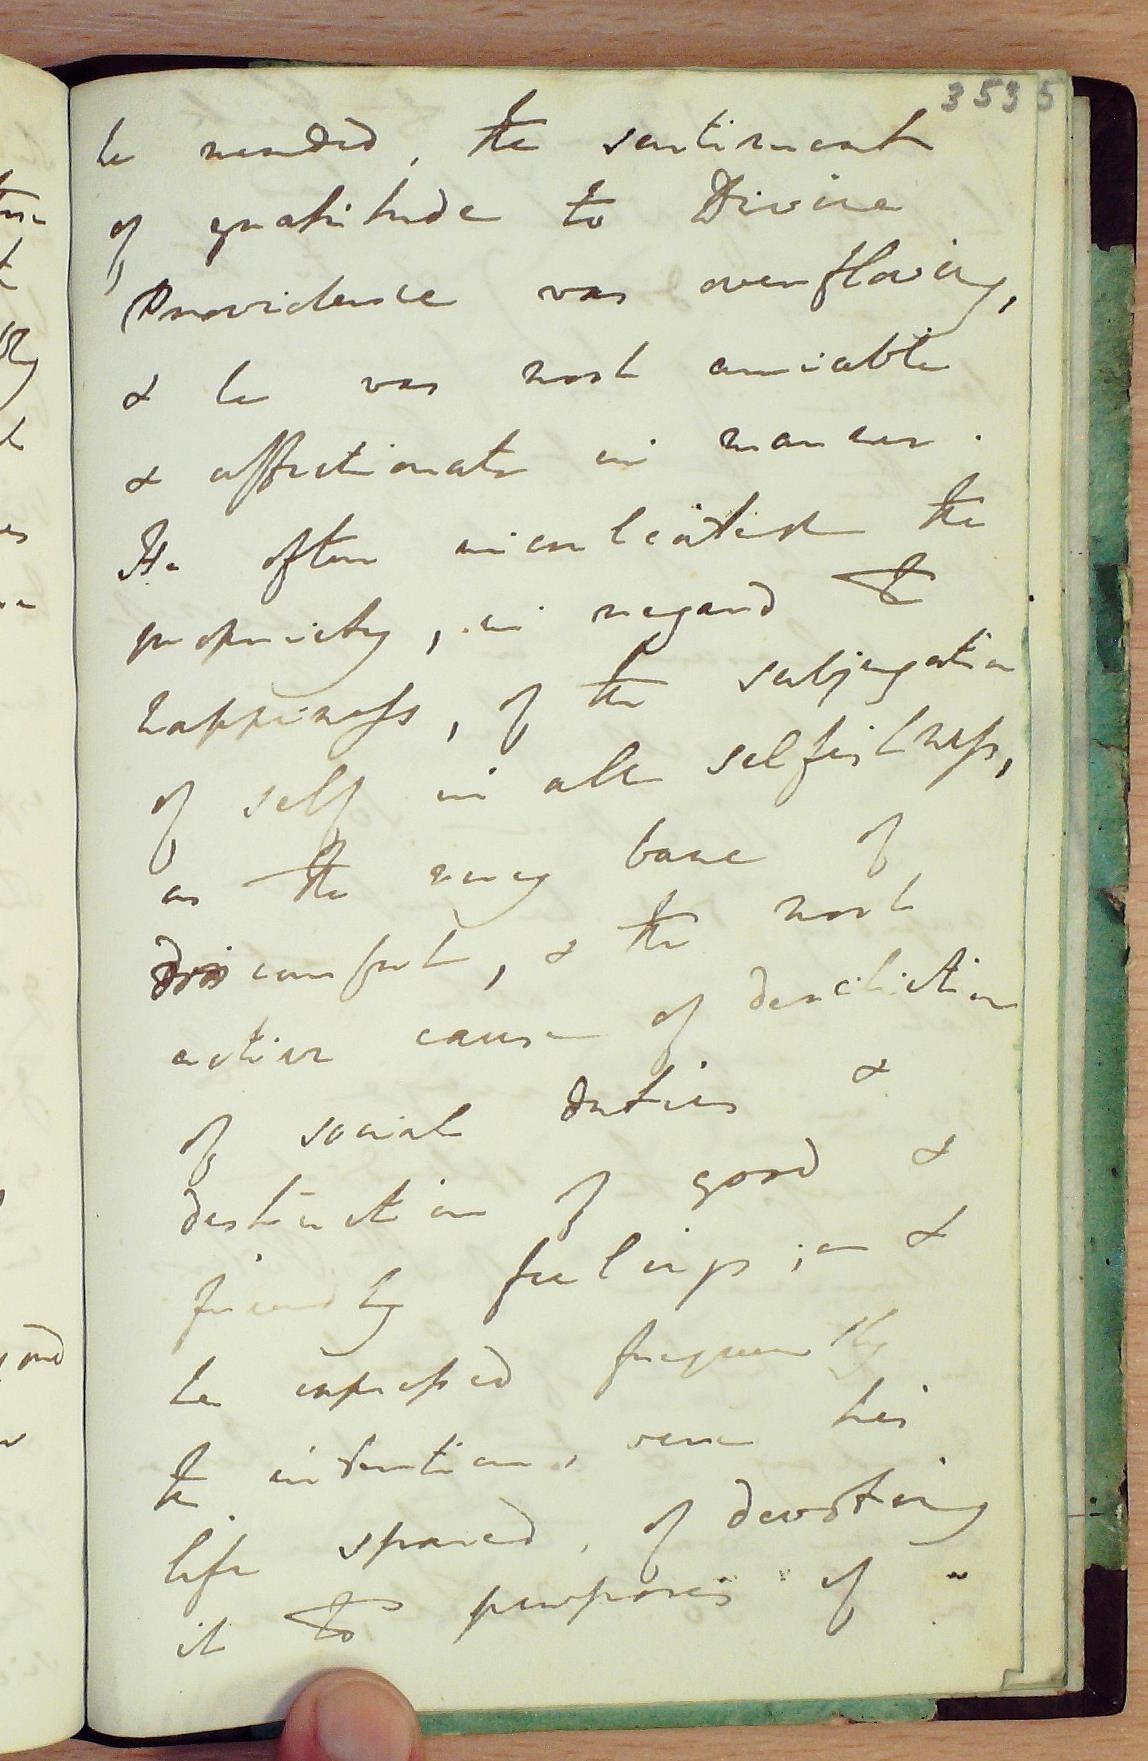 353 5
he needed, the sentiment
of gratitude to Divine
Providence was overflowing,
& he was most amiable
& affectionate in manner.
He often inculcated the
propriety, in regard to
happiness, of the subjugation
of self in all selfishness,
as the very bane of
discomfort, & the most
active cause of dereliction
of social duties &
destruction of good &
friendly feelings; &
he expressed frequently
the intention, were his
life spared, of devoting
it to purposes of